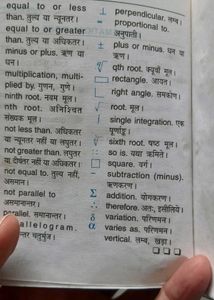 equal to or less
than. तुल्य या न्यूनतर।
equal to or greater
than. तुल्य या अधिकतर।
minus or plus. ऋण या
धन।
multiplication, multi-
plied by. गुणन, गुणे।
ninth root. नवम मूल।
nth root. अनिश्चित
संख्यक मूल।
not less than. अधिकतर
या तुल्य नहीं या लघुतर।
not greater than. लघुतर
नहीं या अधिकतर।
not equal to. तुल्य नहीं,
असमान।
not parallel to
असमानान्तर।
parallel. समानान्तर।
parallelogram.
चतुर्भुज।
⊥ perpendicular. लम्ब।
∝ proportional to.
अनुपाती।
± plus or minus. धन या
ऋण।
qth root. क्यूवाँ मूल।
▭ rectangle. आयत।
right angle. समकोण।
√ root. मूल।
∫ single integration. एक
sixth root. षष्ठ मूल।
:: so is. यथा
□ square. वर्ग।
− subtraction (minus).
ऋणकरण।
Σ addition. योगकरण।
∴ therefore. अतः, इसीलिये।
δ variation. परिणमन।
α varies as. परिणमन।
vertical. लम्ब, खड़ा।
❑ ❑ ❑